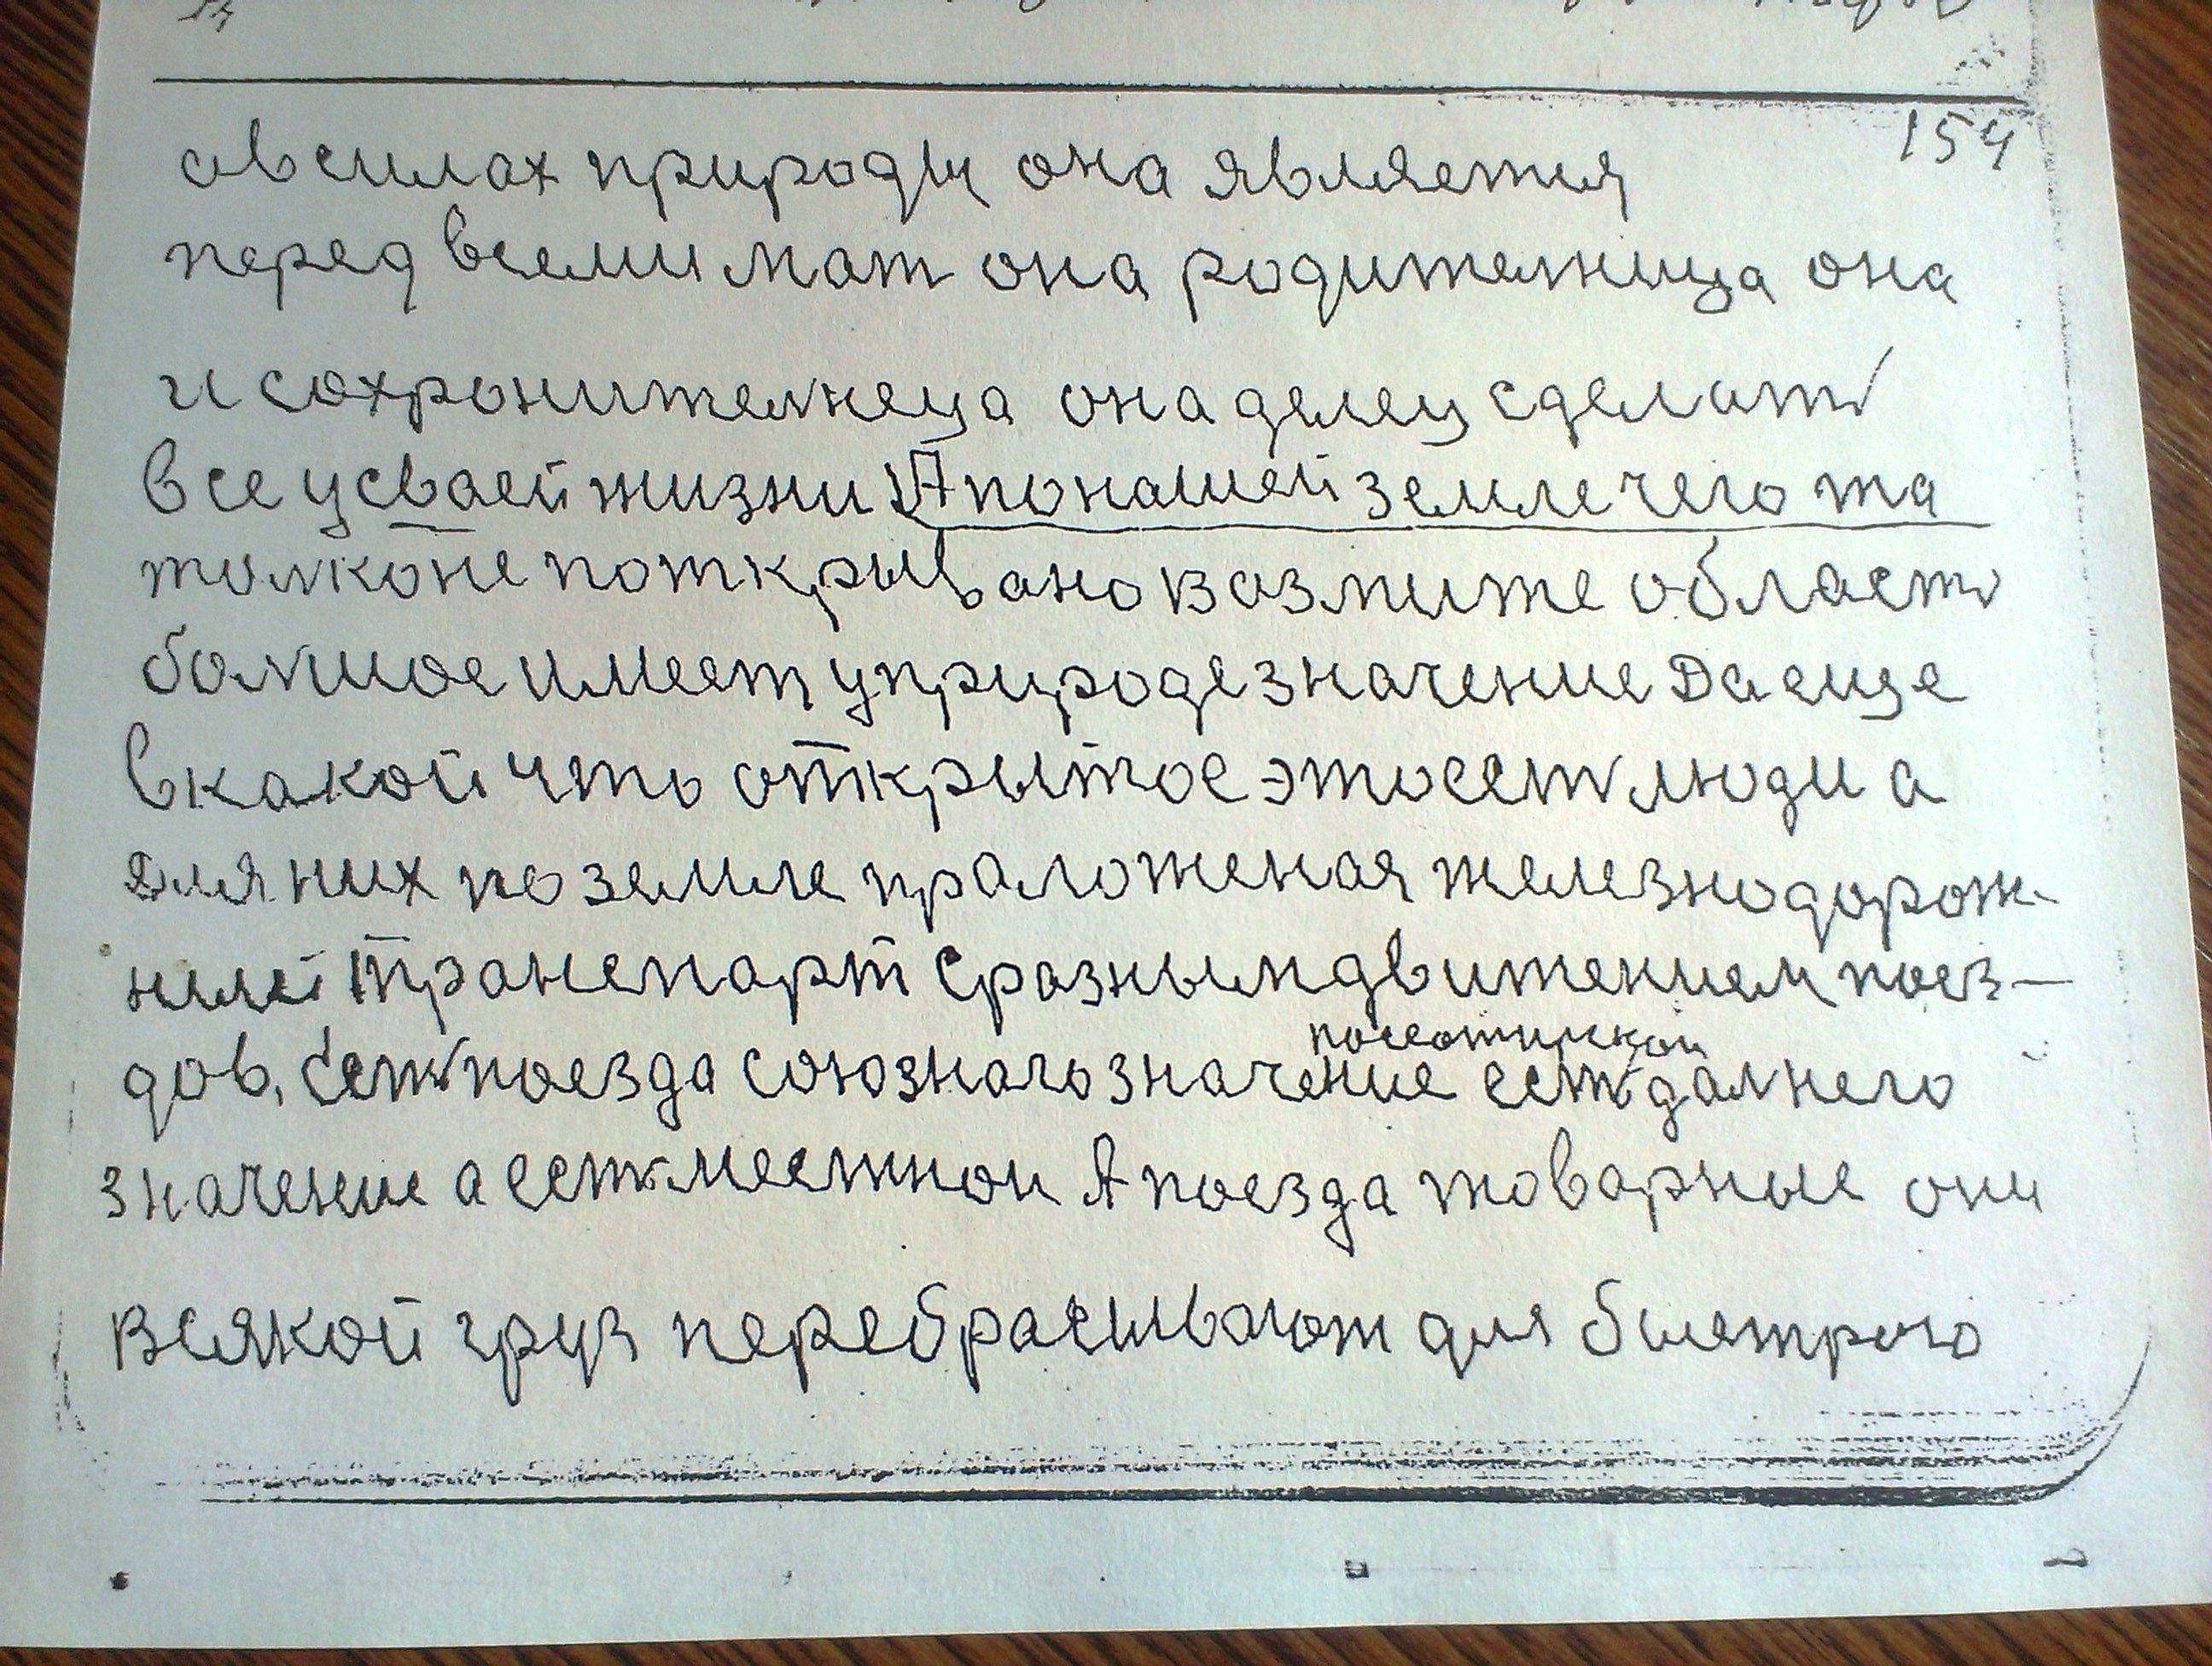 154
а в силах природы она является
перед всеми мат она родителница она
и сохронителнеца она делец сделать
все у сваей жизни А по нашей земле чего та
толко не поткрывано возмите область
болшое имеет у природе значение Да еще
в какой что открытое это есть люди а
для них по земле праложеная железнодорож-
ный транспарт с разным движением поез-
дов, Есть поезда союзнаго значение есть далнего
посеотижской
значение а есть местнои А поезда товарные они
всякой груз перебрасывают для быстрого